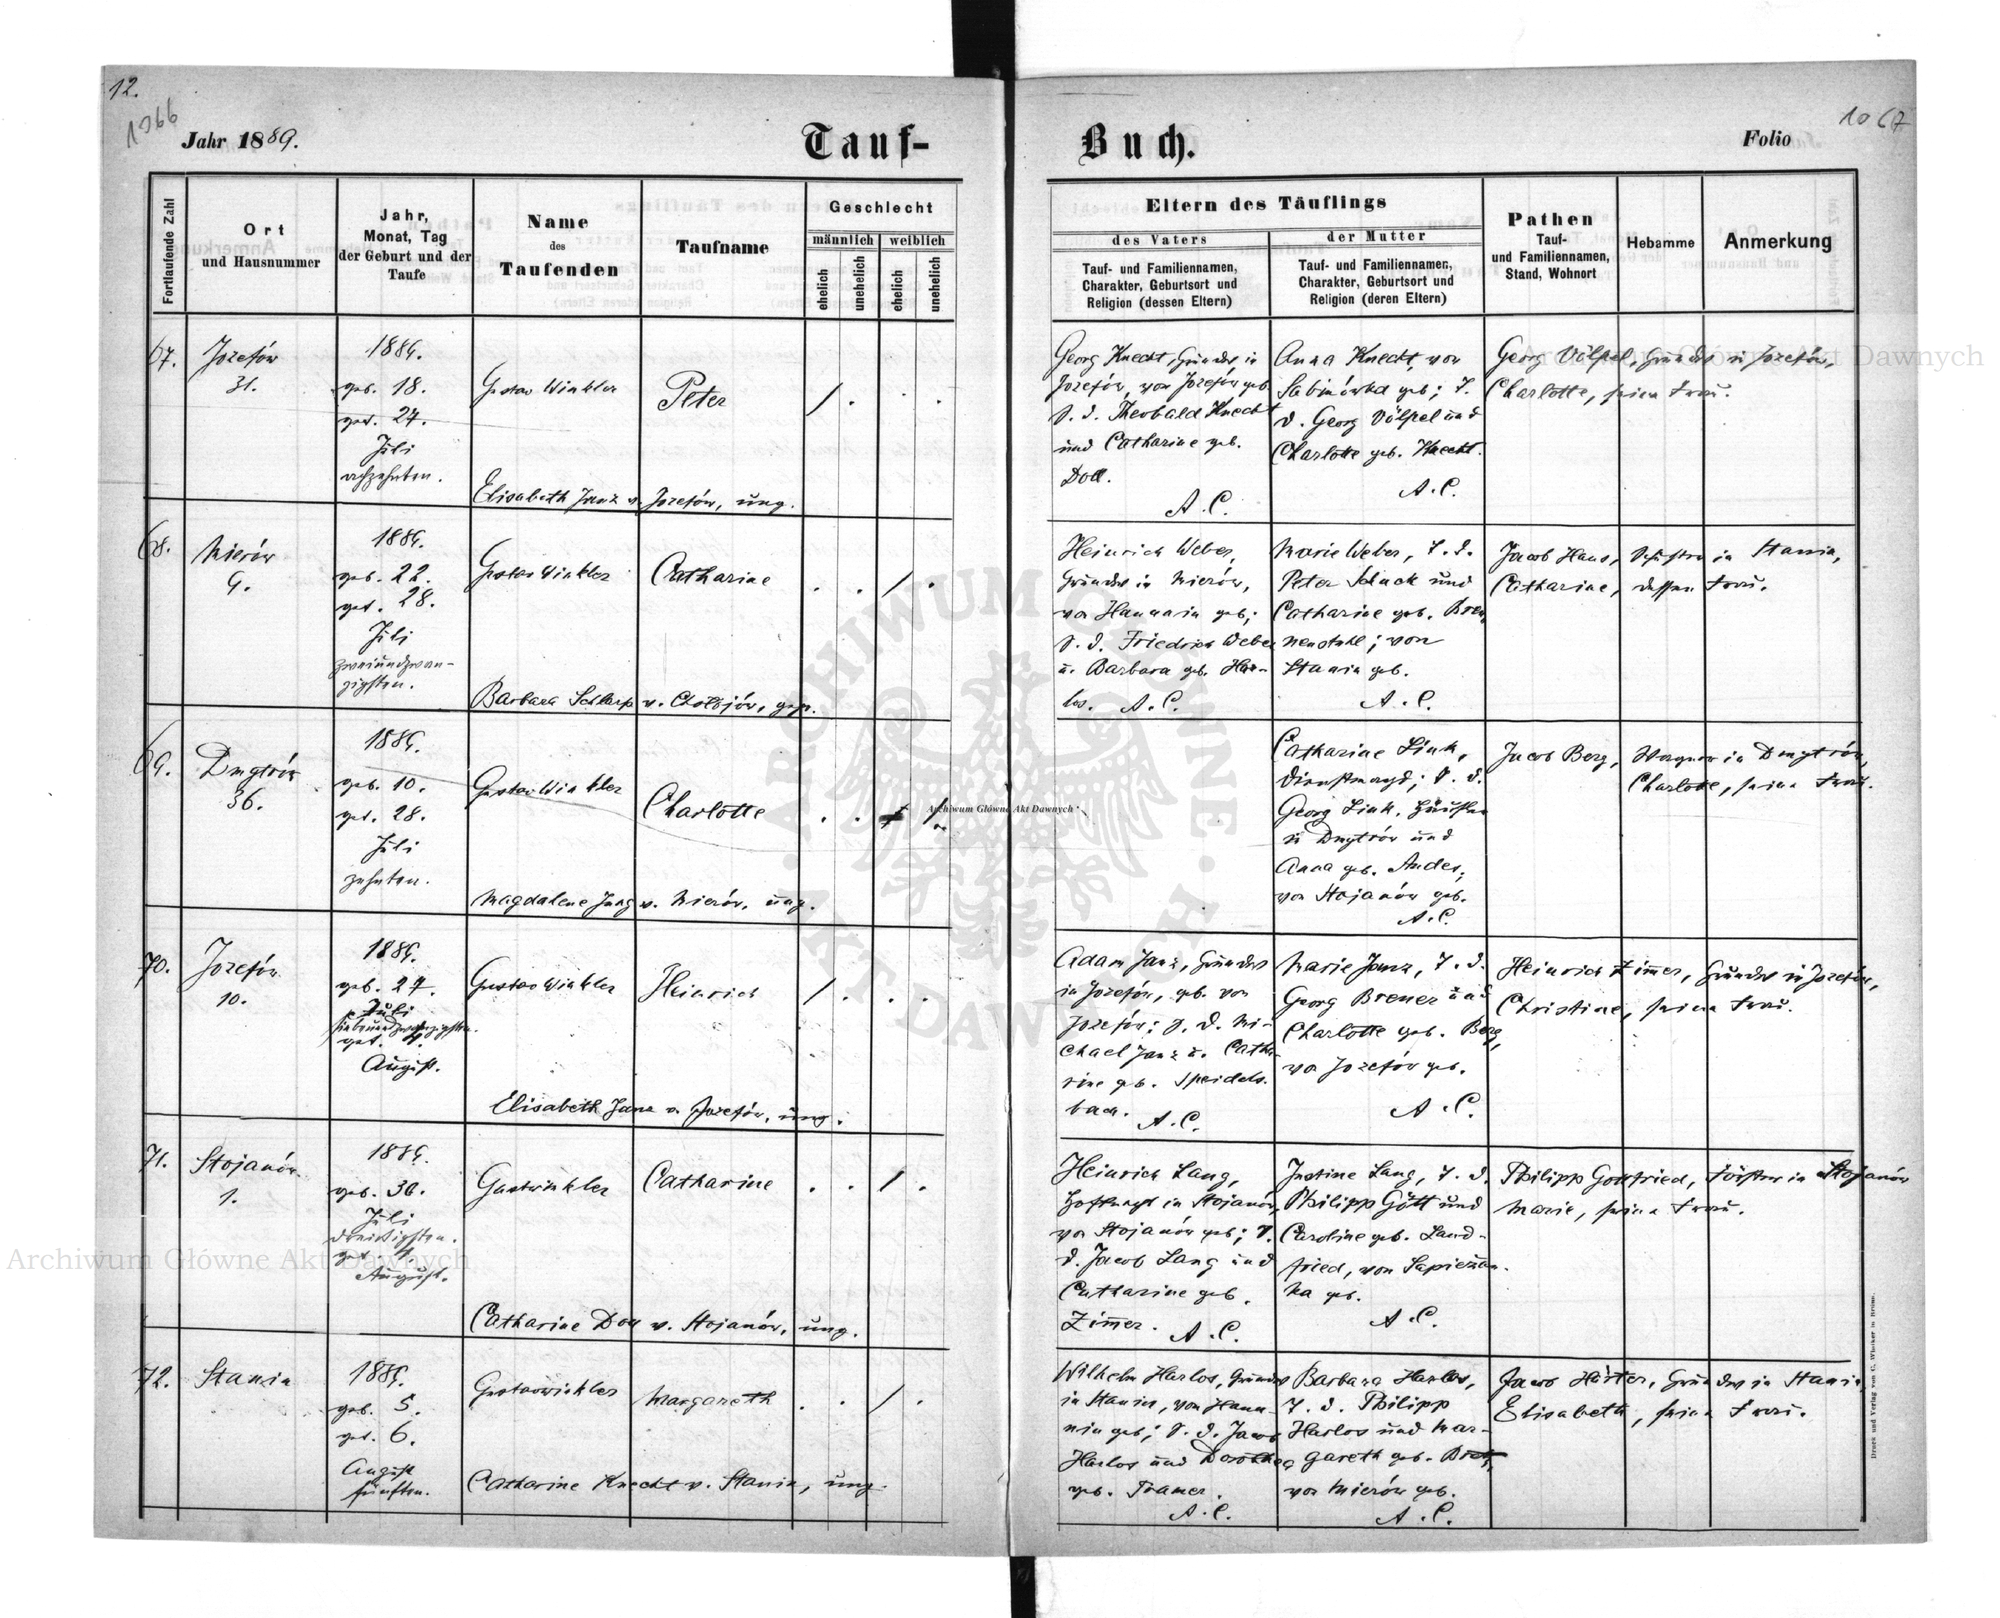 12.
1066
1067
Jahr 1889.
Tauf-
Buch.
Folio
Fortlaufende Zahl
Ort
und Hausnummer
Jahr,
Monat, Tag
der Geburt und der
Taufe
Name
des
Taufenden
Taufname
Geschlecht
männlich
weiblich
ehelich
unehelich
ehelich
unehelich
Eltern des Täuflings
des Vaters
der Mutter
Tauf- und Familiennamen,
Charakter, Geburtsort und
Religion (dessen Eltern)
Tauf- und Familiennamen,
Charakter, Geburtsort und
Religion (deren Eltern)
Pathen
Tauf-
und Familiennamen,
Stand, Wohnort
Hebamme
Anmerkung
67.
Jozefów
31.
1889.
geb. 18.
get. 27.
Juli
achzehnten.
Gustav Winkler
Peter
/ . . .
Elisabeth Janz v. Jozefów, ung.
Georg Knecht, Grundw. in
Jozefów, von Jozefów geb.
S. d. Theobald Knecht
und Catharine geb.
Doll.
A. C.
Anna Knecht, von
Sabinówka geb; T.
d. Georg Völpel und
Charlotte geb. Knecht.
A. C.
Georg Völpel, Grundw. in Jozefów,
Charlotte, seine Frau.
68.
Mierów
9.
1889.
geb. 22.
get. 28.
Juli
zweiundzwan-
zigsten.
Gustav Winkler
Catharine
. . / .
Barbara Schlarp v. Chołojów, gepr.
Heinrich Weber,
Grundw. in Mierów,
von Hanunin geb;
S. d. Friedrich Weber
u. Barbara geb. Har-
los. A. C.
Marie Weber, T. d.
Peter Schuck und
Catharine geb. Bren-
nenstuhl; von
Stanin geb.
A. C.
Jacob Haus, Schuster in Stanin,
Catharine, dessen Frau.
69.
Dmytrów
36.
1889.
geb. 10.
get. 28.
Juli
zehnten.
Gustav Winkler
Charlotte
Magdalene Jung v. Mierów, ung.
Catharine Link,
Dienstmagd; T. d.
Georg Link, Häusler
in Dmytrów und
Anna geb. Andes,
von Stojanów geb.
A. C.
Jacob Berg, Wagner in Dmytrów,
Charlotte, seine Frau.
70.
Jozefów
10.
1889.
geb. 27.
Juli
siebenundzwanzigsten.
get. 4.
August.
Gustav Winkler
Heinrich
/ . . .
Elisabeth Janz v. Jozefów, ung.
Adam Janz, Grundw.
in Jozefów, geb. von
Jozefów; S. d. Mi-
chael Janz u. Catha-
rine geb. Speidels-
bach. A. C.
Marie Janz, T. d.
Georg Brener und
Charlotte geb. Berg,
von Jozefów geb.
A. C.
Heinrich Zimmer, Grundw. in Jozefów,
Christine, seine Frau.
71.
Stojanów
1.
1889.
geb. 30.
Juli
dreißigsten.
get. 4.
August.
Gustav Winkler
Catharine
. . / .
Catharine Doll v. Stojanów, ung.
Heinrich Lang,
Hofknecht in Stojanów,
von Stojanów geb; S.
d. Jacob Lang und
Catharine geb.
Zimmer. A. C.
Justine Lang, T. d.
Philipp Gött und
Caroline geb. Land-
fried, von Sapiezan-
ka geb.
A. C.
Philipp Gottfried, Förster in Stojanów
Marie, seine Frau.
72.
Stanin
1889.
geb. 5.
get. 6.
August
fünften.
Gustav Winkler
Margareth
. . / .
Catharine Knecht v. Stanin, ung.
Wilhelm Harlos, Grundw.
in Stanin, von Hanu-
nin geb; S. d. Jacob
Harlos und Dorothea
geb. Tramer.
A. C.
Barbara Harlos,
T. d. Philipp
Harlos und Mar-
gareth geb.
von Mierów geb.
A. C.
Jacob Härter, Grundw. in Stanin,
Elisabeth, seine Frau.
Druck und Verlag von C. Winiker in Brünn.
Archiwum Główne Akt Dawnych
Archiwum Główne Akt Dawnych
Archiwum Główne Akt Dawnych
ARCHIWUM GŁÓWNE AKT DAWNYCH